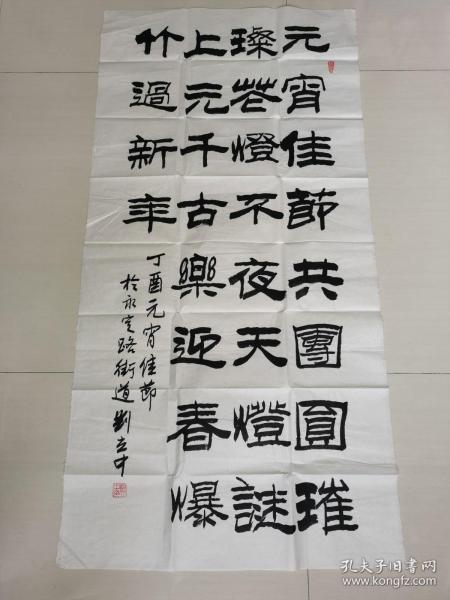 元宵佳節共團圓璀
璨花燈不夜天燈謎
上元千古樂迎春爆
竹過新年
丁酉元宵佳節
於永定路街道劉
孔夫子旧书网
www.kongfz.com